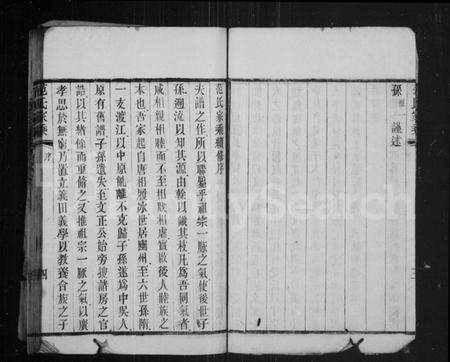 孫 謹述
范氏家乘
范氏家乘續修序
夫譜之作所以聯屬乎祖宗一脈之氣使後世好
孫遡流以知其源由幹以識其枝凡為吾同氣者
咸相親相睦而不至相殘相虐實啟後人睦族之
本也吾家起自唐相履冰世居關州至六世孫隋
一支渡江以中原亂離不克歸子孫遂為中吳人
原有舊譜子孫遺失至文正公始旁搜諸房之官
誥以其緒餘而重脩之又推祖宗一脈之氣以廣
孝思於無窮乃置立義田義學以教養合族之子
范氏家乘 序 四